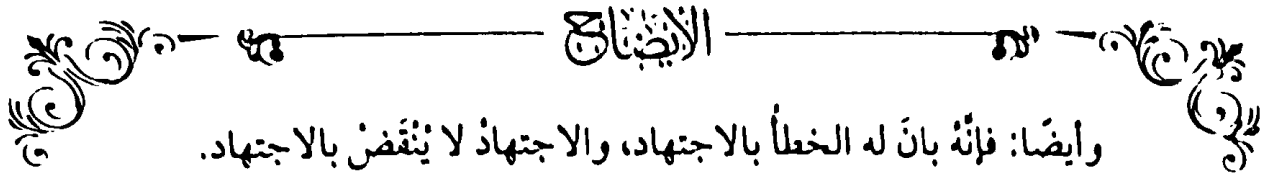 الإيضاح
وأيضًا: فإنَّهُ بانَ له الخطأُ بالاجتهاد، والاجتهادُ لا يُنْقَضُ بالاجتهاد.